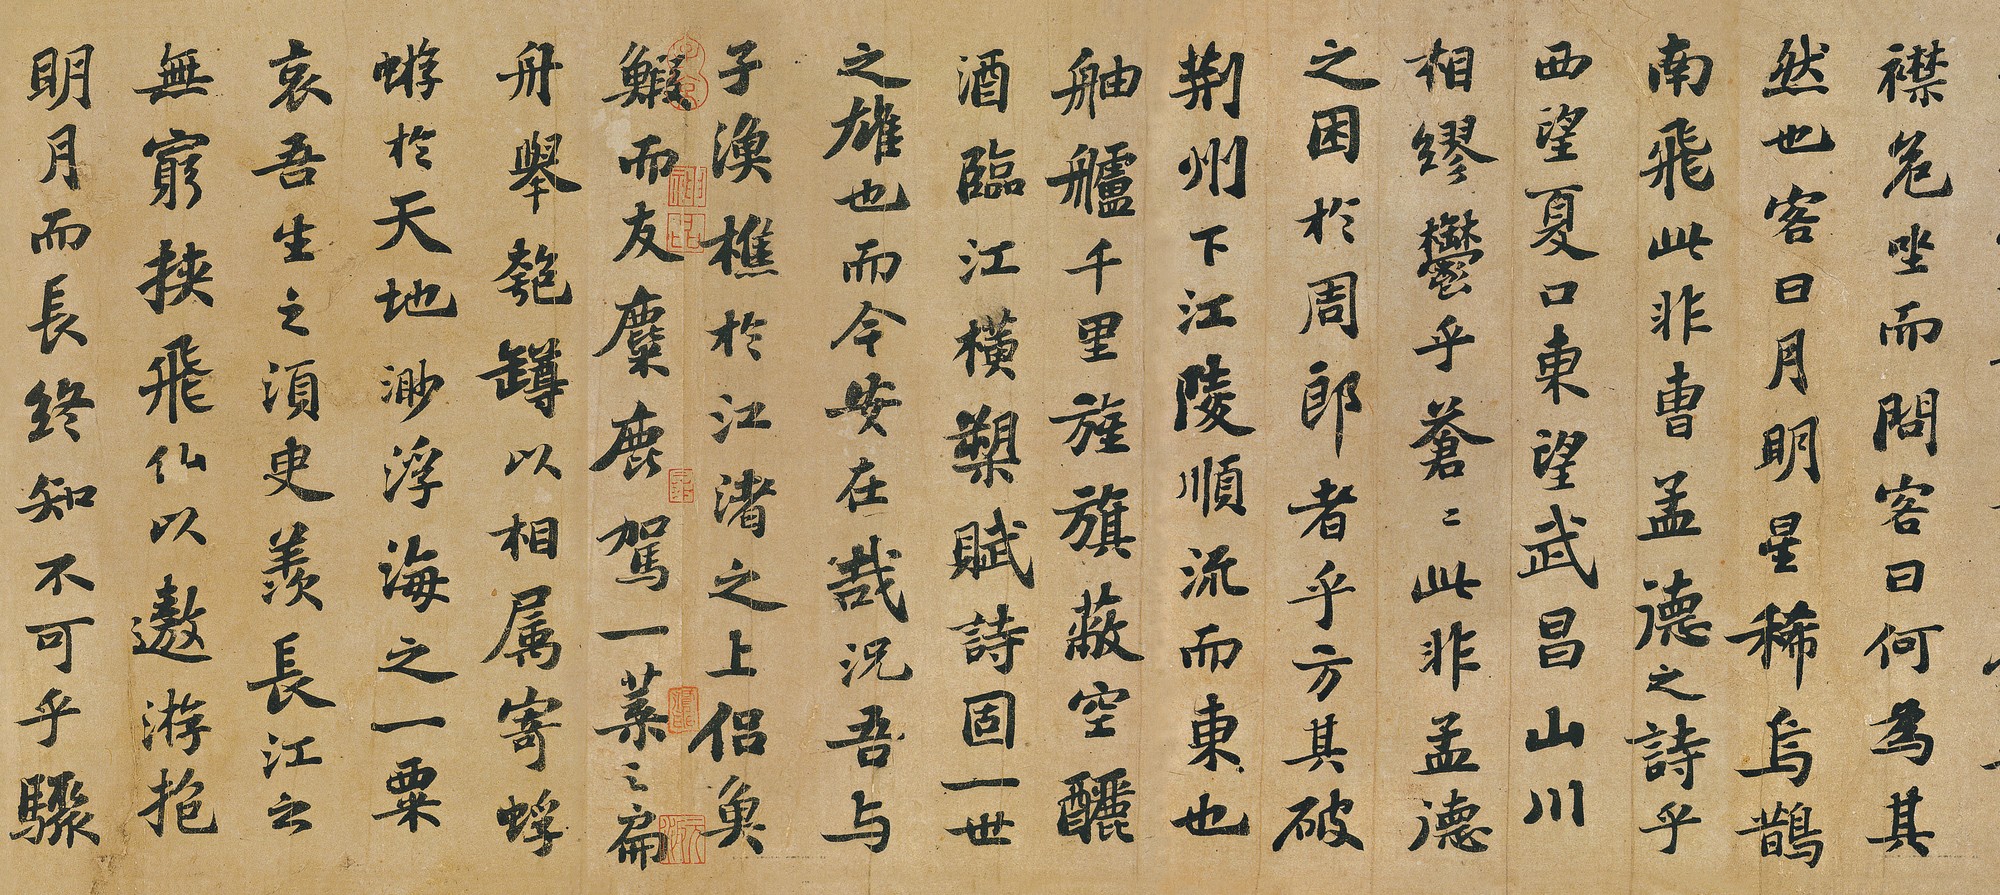 襟危坐而問客曰何為其
然也客曰月明星稀烏鵲
南飛此非曹孟德之詩乎
西望夏口東望武昌山川
相繆鬱乎蒼〻此非孟德
之困於周郎者乎方其破
荊州下江陵順流而東也
舳艫千里旌旗蔽空釃
酒臨江橫槊賦詩固一世
之雄也而今安在哉況吾与
子漁樵於江渚之上侶魚
鰕而友麋鹿駕一葉之扁
舟舉匏罇以相属寄蜉
蝣於天地渺浮海之一粟
哀吾生之須臾羨長江之
無窮挾飛仙以遨游抱
明月而長終知不可乎驟